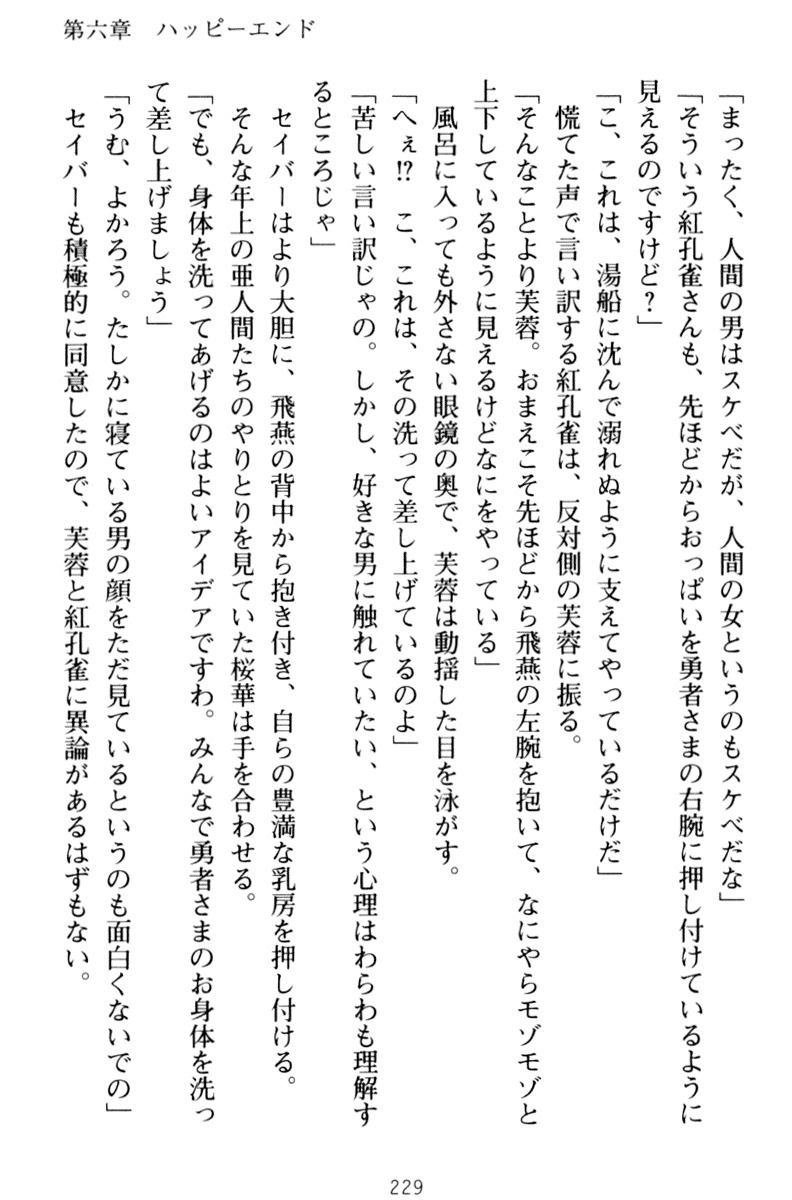 第六章　ハッピーエンド
「まったく、人間の男はスケベだが、人間の女というのもスケベだな」
「そういう紅孔雀さんも、先ほどからおっぱいを勇者さまの右腕に押し付けているように
見えるのですけど？」
「こ、これは、湯船に沈んで溺れぬように支えてやっているだけだ」
慌てた声で言い訳する紅孔雀は、反対側の芙蓉に振る。
「そんなことより芙蓉。おまえこそ先ほどから飛燕の左腕を抱いて、なにやらモゾモゾと
上下しているように見えるけどなにをやっている」
風呂に入っても外さない眼鏡の奥で、芙蓉は動揺した目を泳がす。
「へぇ!?　こ、これは、その洗って差し上げているのよ」
「苦しい言い訳じゃの。しかし、好きな男に触れていたい、という心理はわらわも理解す
るところじゃ」
セイバーはより大胆に、飛燕の背中から抱き付き、自らの豊満な乳房を押し付ける。
そんな年上の亜人間たちのやりとりを見ていた桜華は手を合わせる。
「でも、身体を洗ってあげるのはよいアイデアですわ。みんなで勇者さまのお身体を洗っ
て差し上げましょう」
「うむ、よかろう。たしかに寝ている男の顔をただ見ているというのも面白くないでの」
セイバーも積極的に同意したので、芙蓉と紅孔雀に異論があるはずもない。
229